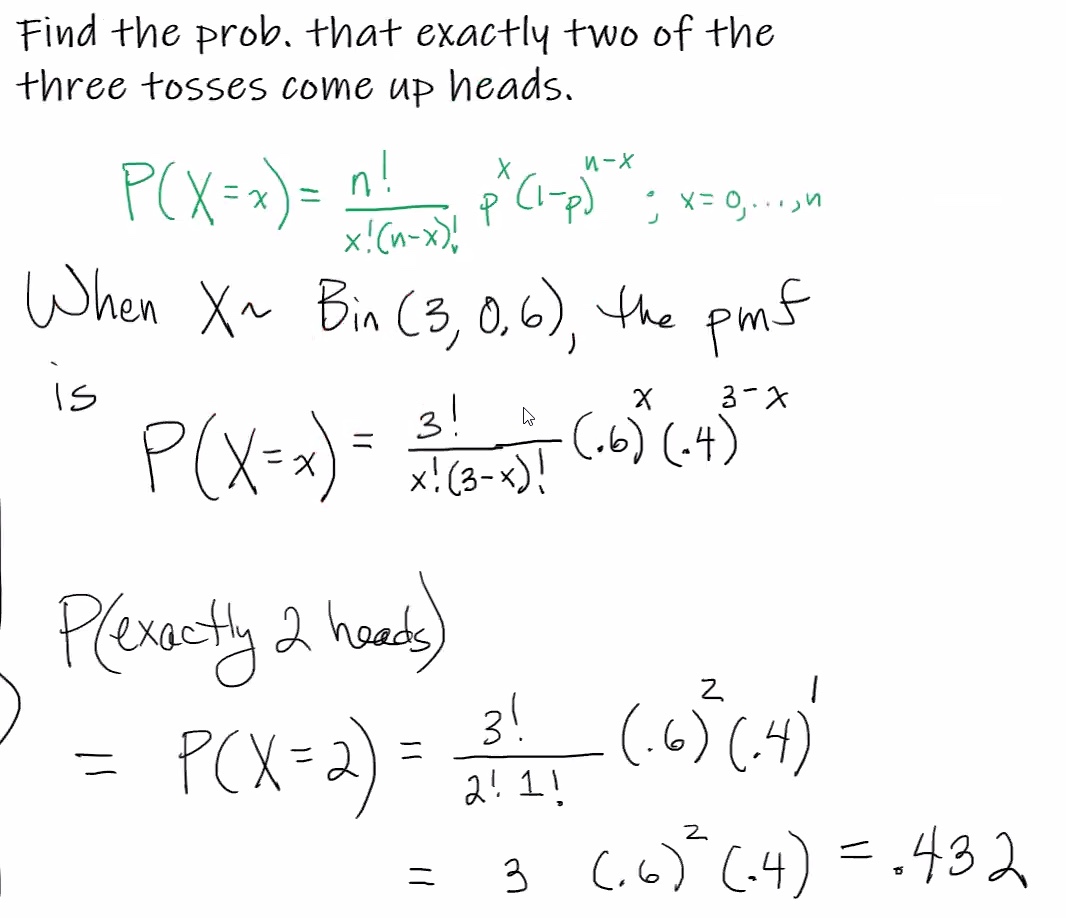 Find the prob. that exactly two of the
three tosses come up heads.
P(X=x) = n!/(x!(n-x)!) p^x (1-p)^(n-x) ; x=0,...,n
When X~ Bin (3, 0.6), the pmf
is
P(X=x) = 3!/(x!(3-x)!) (.6)^x (.4)^(3-x)
P(exactly 2 heads)
= P(X=2) = 3!/(2! 1!) (.6)^2 (.4)^1
= 3 (.6)^2 (.4) = .432